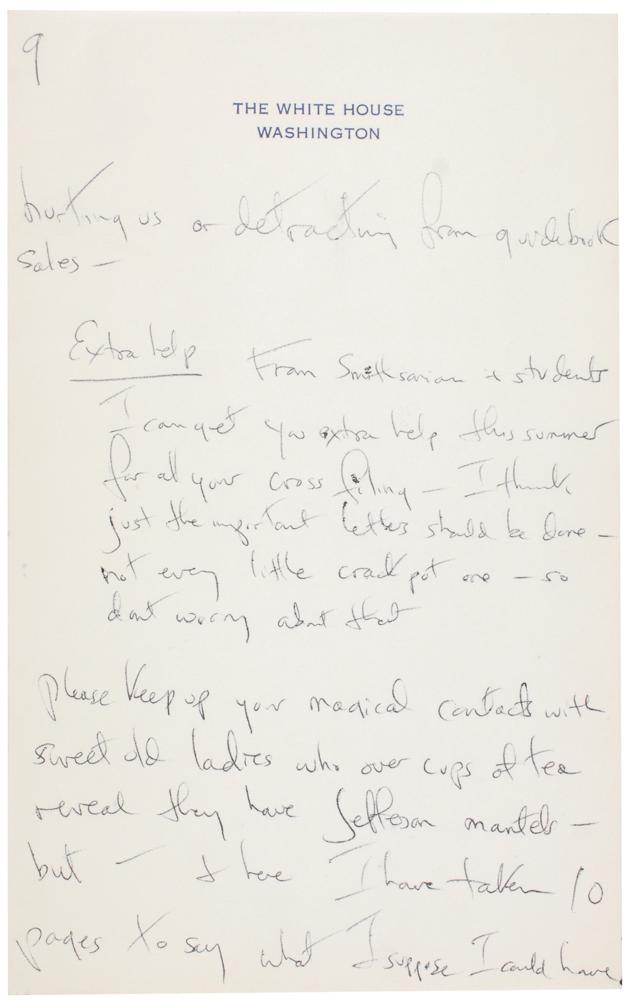 9
THE WHITE HOUSE
WASHINGTON
hurting us or detracting from guidebook
sales —
Extra help From Smithsonian + students
I can get you extra help this summer
for all your cross filing — I think
just the important letters should be done —
not every little crack pot one — so
dont worry about that
please keep up your magical contacts with
sweet old ladies who over cups of tea
reveal they have Jefferson mantels —
but — + here I have taken 10
pages to say what I suppose I could have